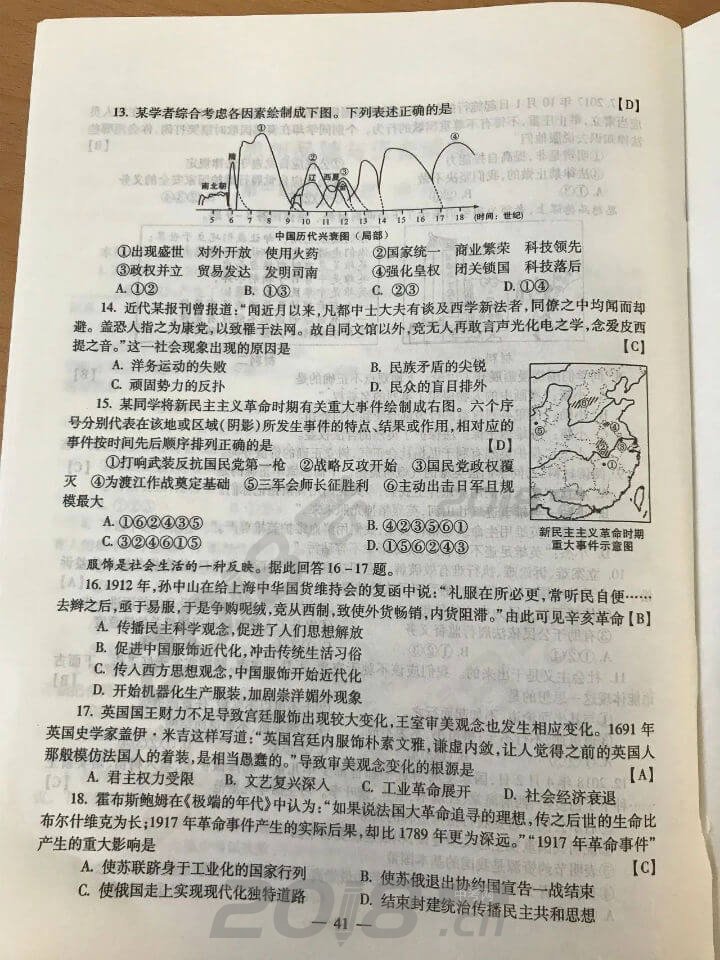 13. 某学者综合考虑各因素绘制成下图。下列表述正确的是 【D】
①
②
③
④
隋
辽
西夏
金
南北朝
5 6 7 8 9 10 11 12 13 14 15 16 17 18 (时间：世纪)
中国历代兴衰图（局部）
①出现盛世 对外开放 使用火药 ②国家统一 商业繁荣 科技领先
③政权并立 贸易发达 发明司南 ④强化皇权 闭关锁国 科技落后
A. ①② B. ①③ C. ②③ D. ①④
14. 近代某报刊曾报道：“闻近月以来，凡都中士大夫有谈及西学新法者，同僚之中均闻而却
避。盖恐人指之为康党，以致罹于法网。故自同文馆以外，竟无人再敢言声光化电之学，念爱皮西
提之音。”这一社会现象出现的原因是 【C】
A. 洋务运动的失败 B. 民族矛盾的尖锐
C. 顽固势力的反扑 D. 民众的盲目排外
15. 某同学将新民主主义革命时期有关重大事件绘制成右图。六个序
号分别代表在该地或区域(阴影)所发生事件的特点、结果或作用，相对应的
事件按时间先后顺序排列正确的是 【D】
①打响武装反抗国民党第一枪 ②战略反攻开始 ③国民党政权覆
灭 ④为渡江作战奠定基础 ⑤三军会师长征胜利 ⑥主动出击日军且规
模最大
A. ①⑥②④③⑤ B. ④②③⑤⑥①
C. ③②④⑥①⑤ D. ①⑤⑥②④③
新民主主义革命时期
重大事件示意图
服饰是社会生活的一种反映。据此回答16－17题。
16. 1912年，孙中山在给上海中华国货维持会的复函中说：“礼服在所必更，常听民自便……
去辫之后，亟于易服，于是争购呢绒，竞从西制，致使外货畅销，内货阻滞。”由此可见辛亥革命 【B】
A. 传播民主科学观念，促进了人们思想解放
B. 促进中国服饰近代化，冲击传统生活习俗
C. 传入西方思想观念，中国服饰开始近代化
D. 开始机器化生产服装，加剧崇洋媚外现象
17. 英国国王财力不足导致宫廷服饰出现较大变化，王室审美观念也发生相应变化。1691年
英国史学家盖伊·米吉这样写道：“英国宫廷内服饰朴素文雅，谦虚内敛，让人觉得之前的英国人
那般模仿法国人的着装，是相当愚蠢的。”导致审美观念变化的根源是 【A】
A. 君主权力受限 B. 文艺复兴深入 C. 工业革命展开 D. 社会经济衰退
18. 霍布斯鲍姆在《极端的年代》中认为：“如果说法国大革命追寻的理想，传之后世的生命比
布尔什维克为长；1917年革命事件产生的实际后果，却比1789年更为深远。”“1917年革命事件”
产生的重大影响是 【C】
A. 使苏联跻身于工业化的国家行列 B. 使苏俄退出协约国宣告一战结束
C. 使俄国走上实现现代化独特道路 D. 结束封建统治传播民主共和思想
— 41 —